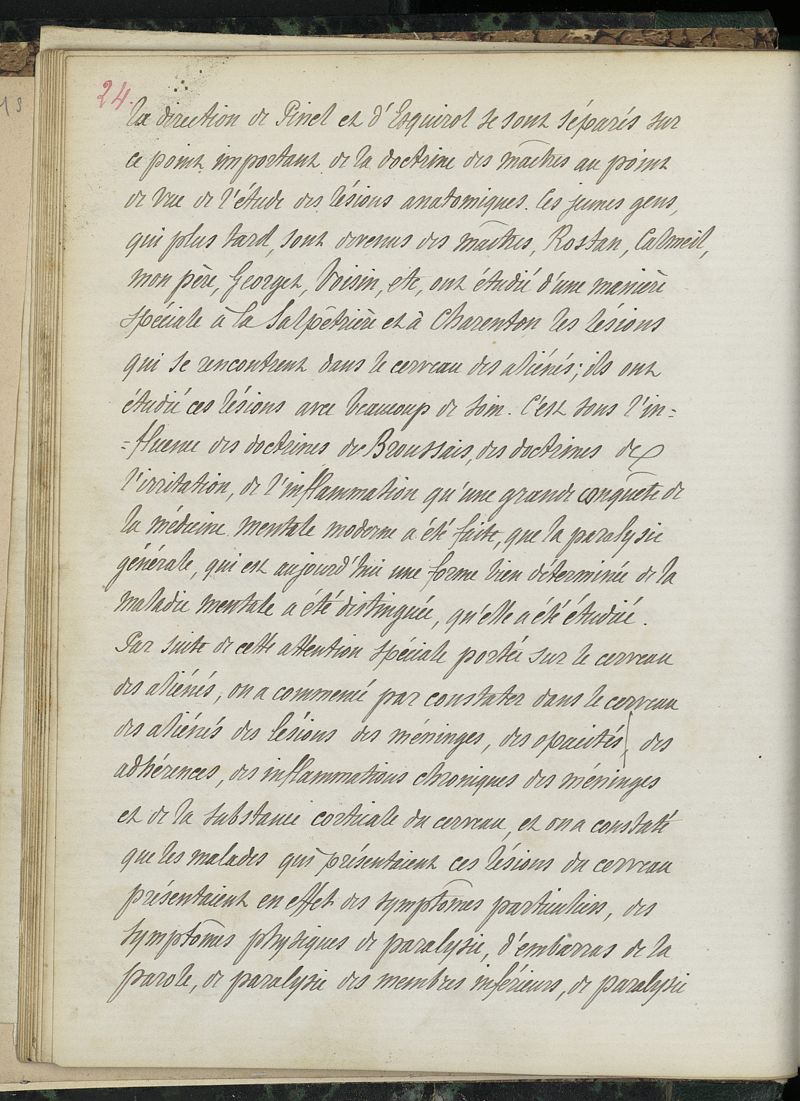 24.
la direction de Pinel et d'Esquirol se sont séparés sur
ce point important de la doctrine des maîtres au point
de vue de l'étude des lésions anatomiques. Ces jeunes gens,
qui plus tard, sont devenus des maîtres, Rostan, Calmeil,
mon père, Georget, Voisin, etc, ont étudié d'une manière
spéciale à la Salpêtrière et à Charenton les lésions
qui se rencontrent dans le cerveau des aliénés; ils ont
étudié ces lésions avec beaucoup de soin. C'est sous l'in-
-fluence des doctrines de Broussais, des doctrines de
l'irritation, de l'inflammation qu'une grande conquête de
la médecine mentale moderne a été faite, que la paralysie
générale, qui est aujourd'hui une forme bien déterminée de la
maladie mentale a été distinguée, qu'elle a été étudiée.
Par suite de cette attention spéciale portée sur le cerveau
des aliénés, on a commencé par constater dans le cerveau
des aliénés des lésions des méninges, des opacités, des
adhérences, des inflammations chroniques des méninges
et de la substance corticale du cerveau, et on a constaté
que les malades qui présentaient ces lésions du cerveau
présentaient en effet des symptômes particuliers, des
symptômes physiques de paralysie, d'embarras de la
parole, de paralysie des membres inférieurs, de paralysie